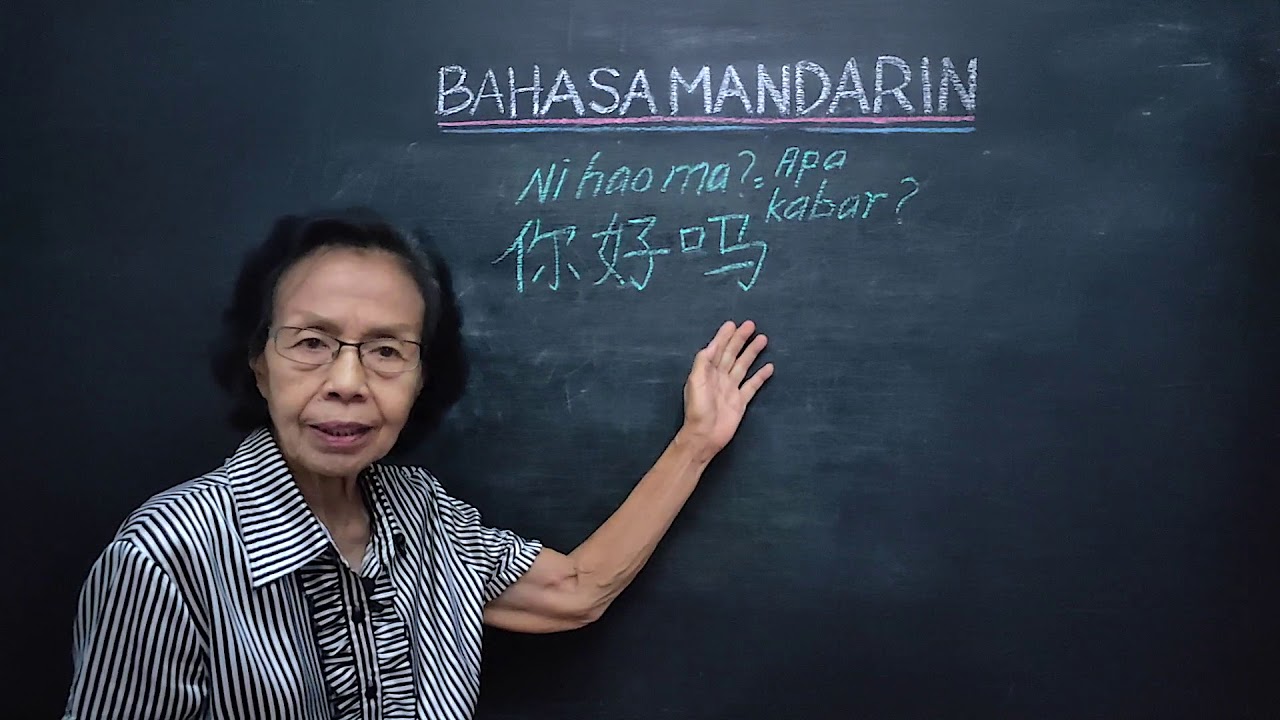 BAHASA MANDARIN
Ni hao ma? = Apa
kabar?
你好吗